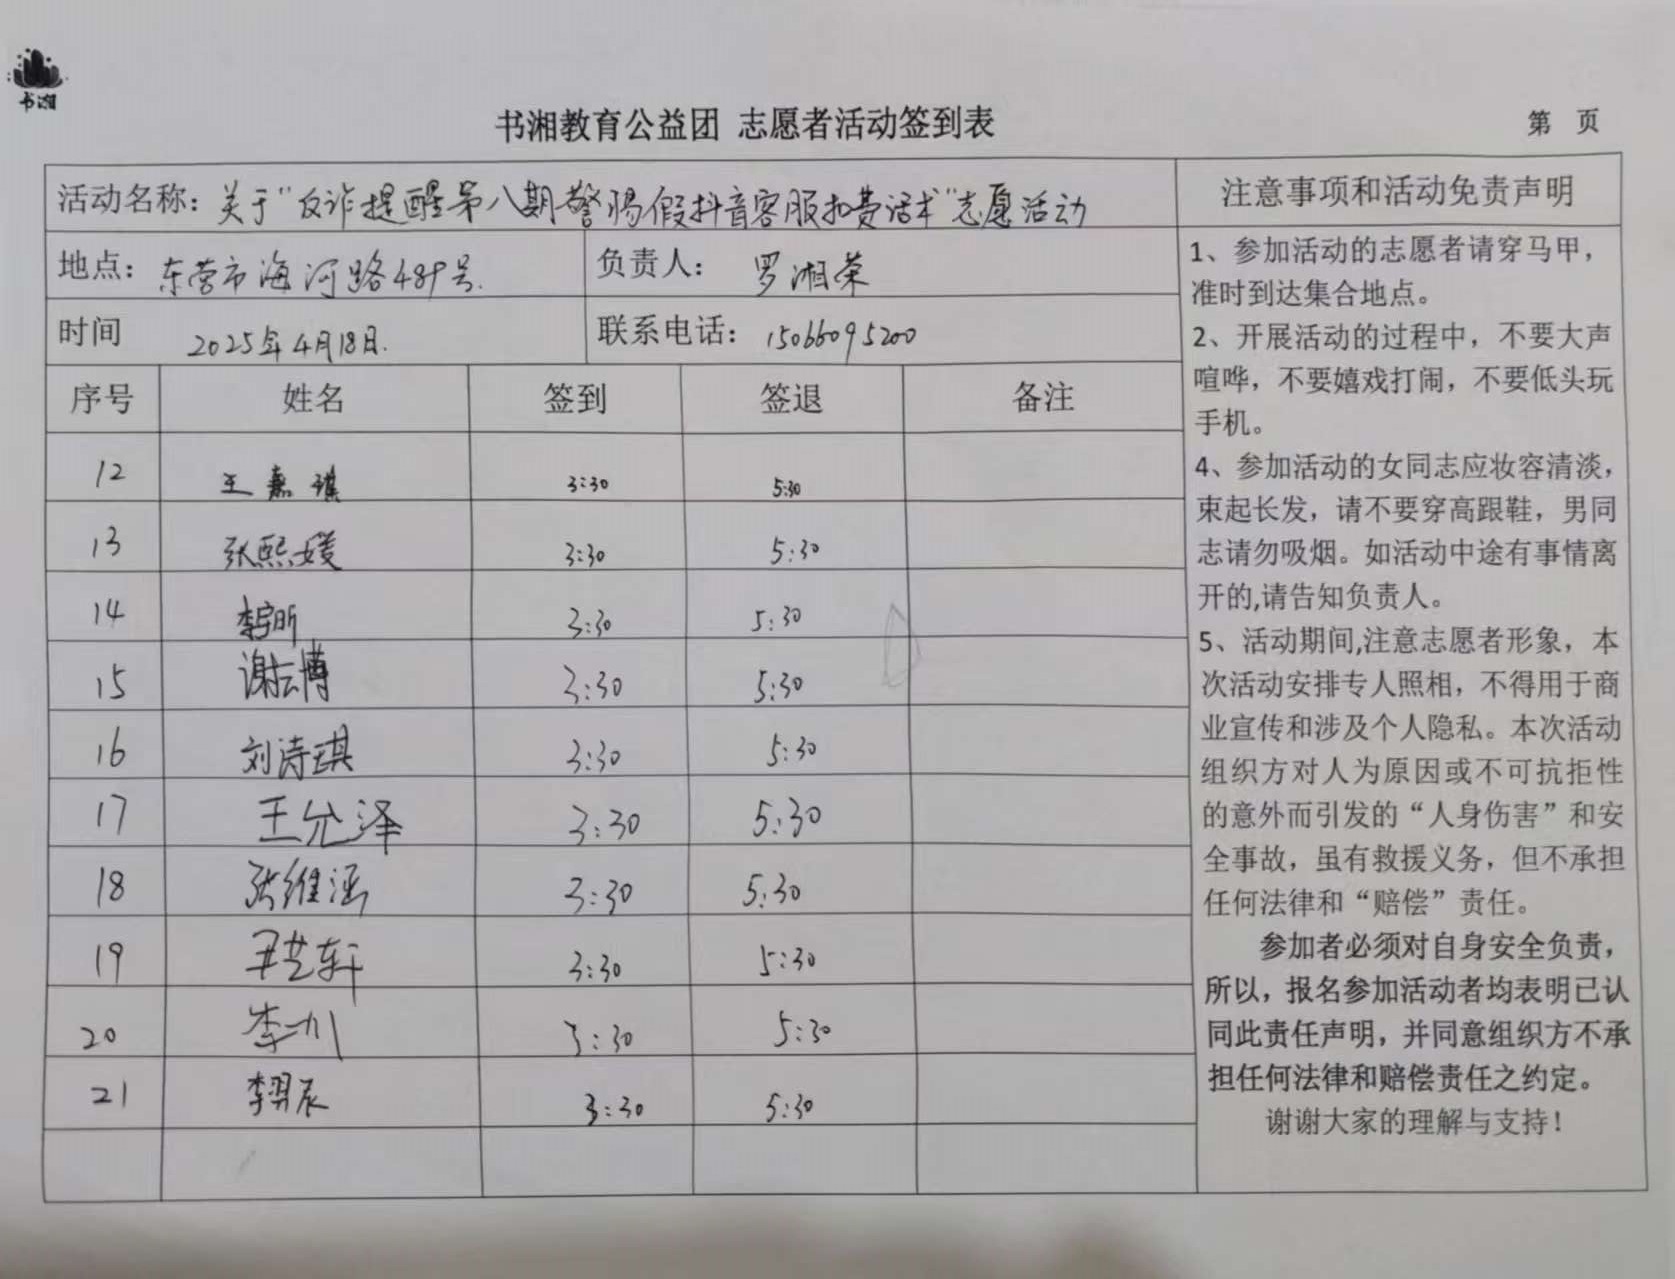 书湘
书湘教育公益团 志愿者活动签到表
第 页
活动名称：关于“反诈提醒第八期警惕假抖音客服扣费话术”志愿活动
地点：东营市海河路489号.
负责人： 罗湘荣
时间 2025年4月18日.
联系电话：15066095200
序号 姓名 签到 签退 备注
12 王嘉琪 3:30 5:30
13 张熙媛 3:30 5:30
14 3:30 5:30
15 谢云博 3:30 5:30
16 刘诗琪 3:30 5:30
17 王允泽 3:30 5:30
18 张维涵 3:30 5:30
19 尹艺轩 3:30 5:30
20 3:30 5:30
21 李羿辰 3:30 5:30
注意事项和活动免责声明
1、参加活动的志愿者请穿马甲，
准时到达集合地点。
2、开展活动的过程中，不要大声
喧哗，不要嬉戏打闹，不要低头玩
手机。
4、参加活动的女同志应妆容清淡，
束起长发，请不要穿高跟鞋，男同
志请勿吸烟。如活动中途有事情离
开的,请告知负责人。
5、活动期间,注意志愿者形象，本
次活动安排专人照相，不得用于商
业宣传和涉及个人隐私。本次活动
组织方对人为原因或不可抗拒性
的意外而引发的“人身伤害”和安
全事故，虽有救援义务，但不承担
任何法律和“赔偿”责任。
参加者必须对自身安全负责，
所以，报名参加活动者均表明已认
同此责任声明，并同意组织方不承
担任何法律和赔偿责任之约定。
谢谢大家的理解与支持！